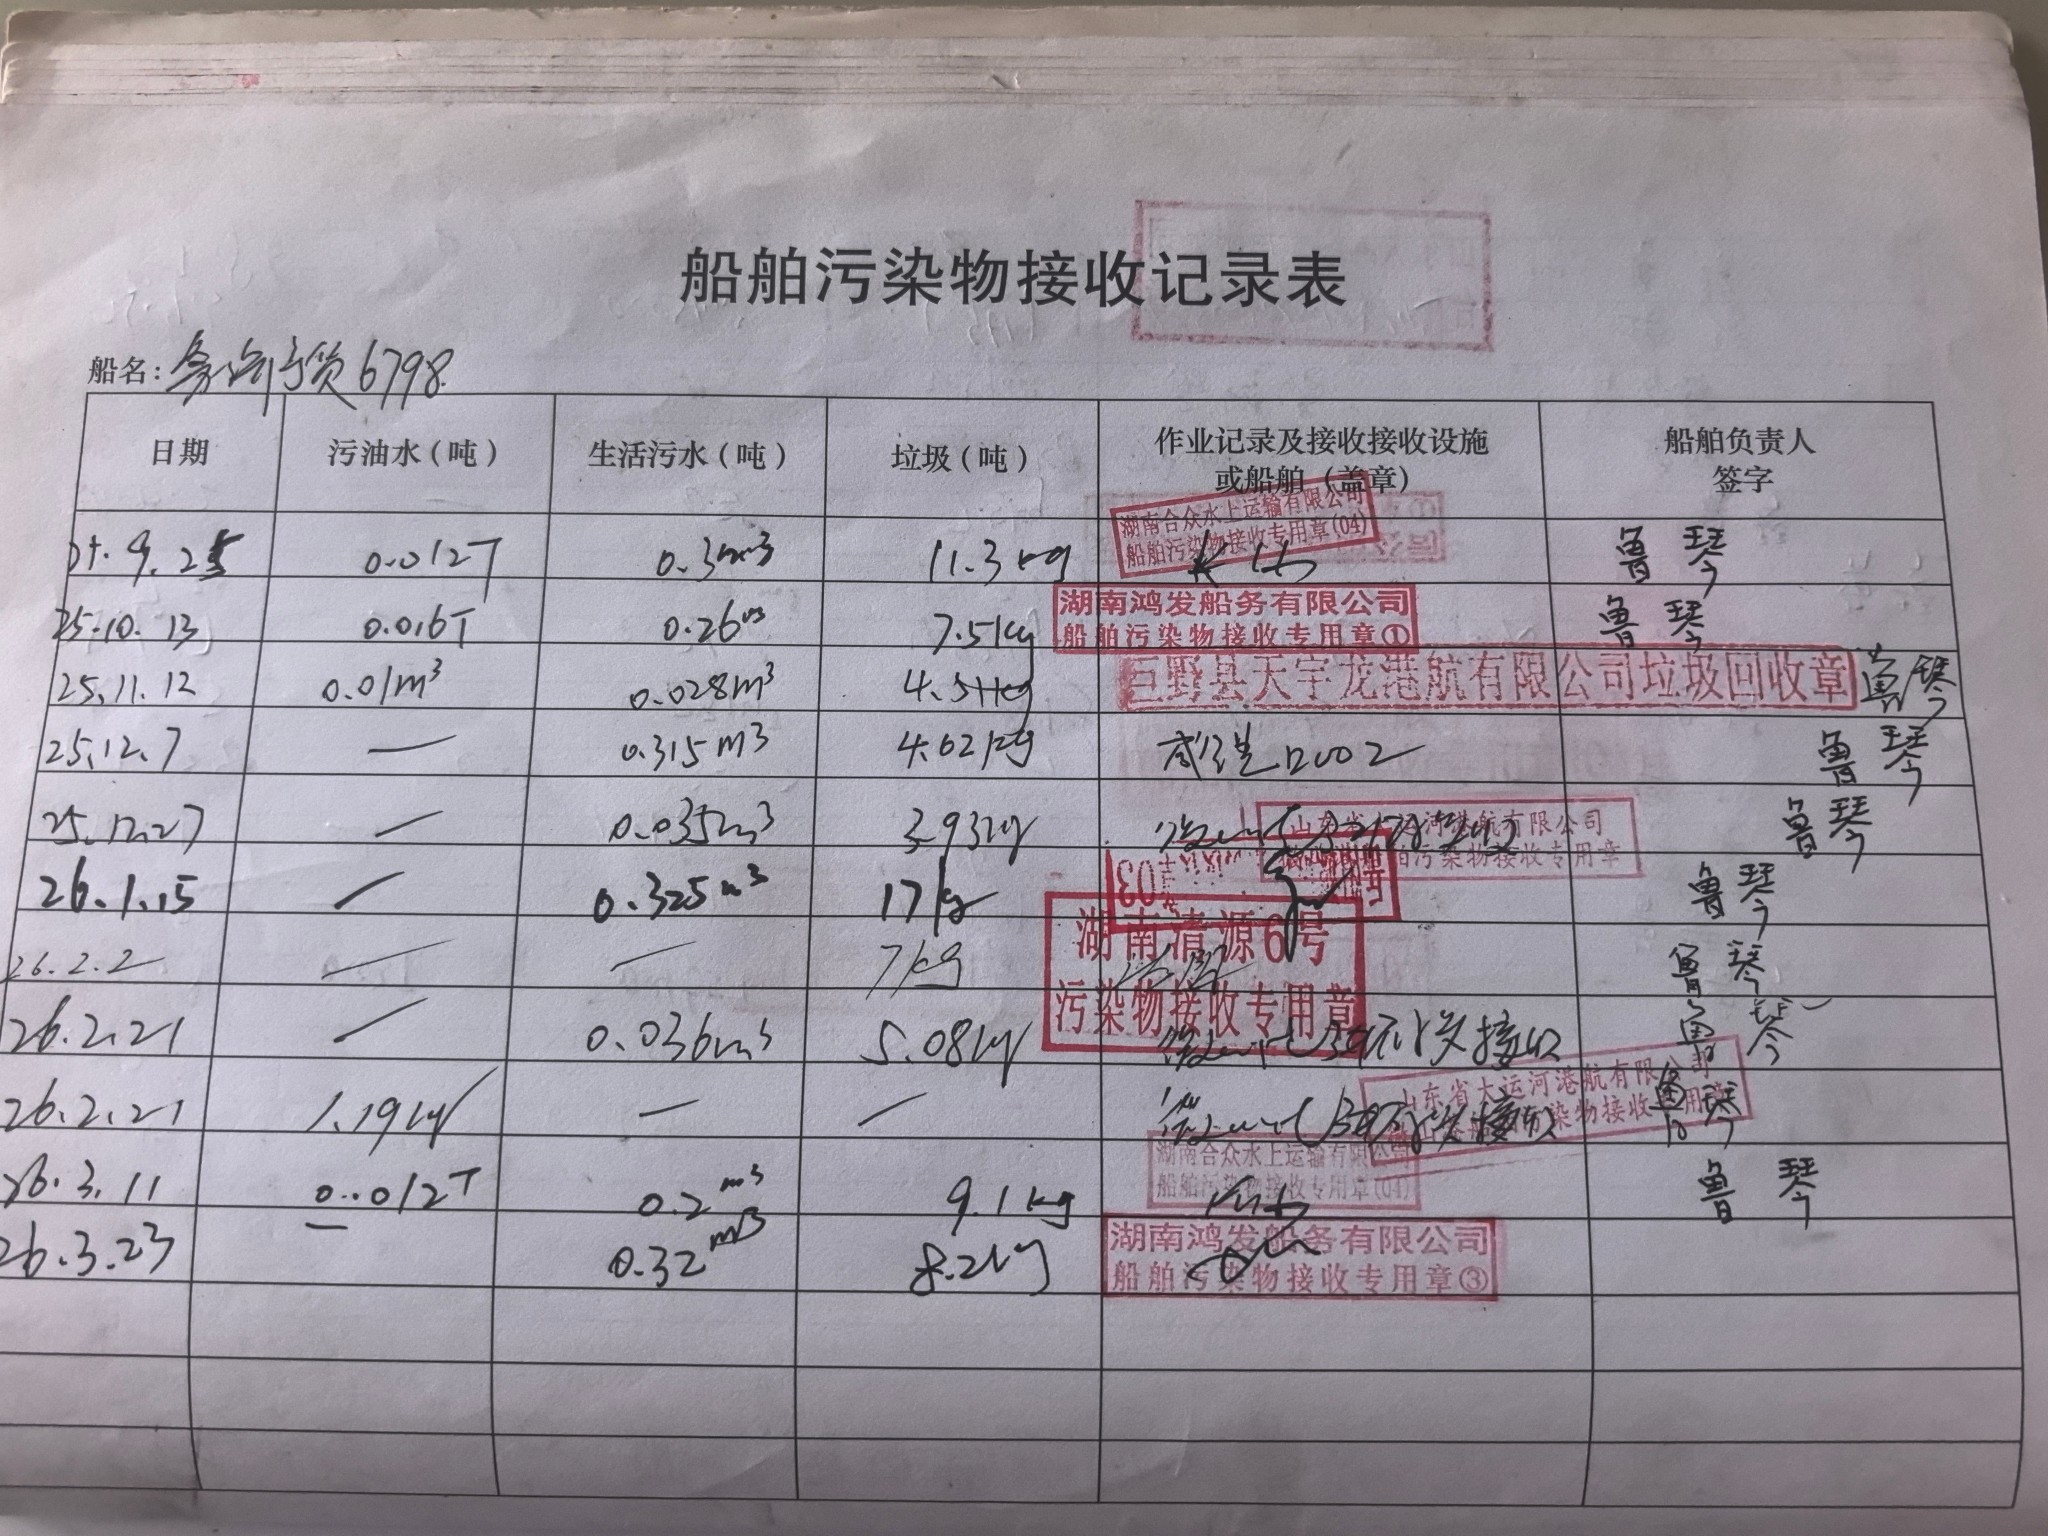 船舶污染物接收记录表
船名: 货6798
日期 污油水(吨) 生活污水(吨) 垃圾(吨) 作业记录及接收接收设施 船舶负责人
或船舶(盖章) 签字
湖南合众水上运输有限公司
船舶污染物接收专用章(04)
9.25 0.012T 0.3m³ 11.3kg 鲁琴
湖南鸿发船务有限公司
船舶污染物接收专用章①
25.10.13 0.016T 0.26m³ 7.5kg 鲁琴
25.11.12 0.01m³ 0.028m³ 巨野县天宇龙港航有限公司垃圾回收章 鲁琴
25.12.7 — 0.315m³ 4.62kg 鲁琴
山东省大运河港航有限公司
船舶污染物接收专用章
25.12.27 — 0.035m³ 3.93kg 鲁琴
26.1.15 — 0.325m³ 17kg 鲁琴
湖南清源6号
污染物接收专用章
26.2.2 — — 7kg 鲁琴
26.2.21 — 0.036m³ 5.08kg 接收 鲁琴
山东省大运河港航有限公司
污染物接收专用章
26.2.21 1.19kg — — 接收 鲁琴
湖南合众水上运输有限公司
船舶污染物接收专用章(04)
26.3.11 0.012T 0.2m³ 9.1kg 鲁琴
湖南鸿发船务有限公司
船舶污染物接收专用章③
26.3.23 0.32m³ 8.2kg